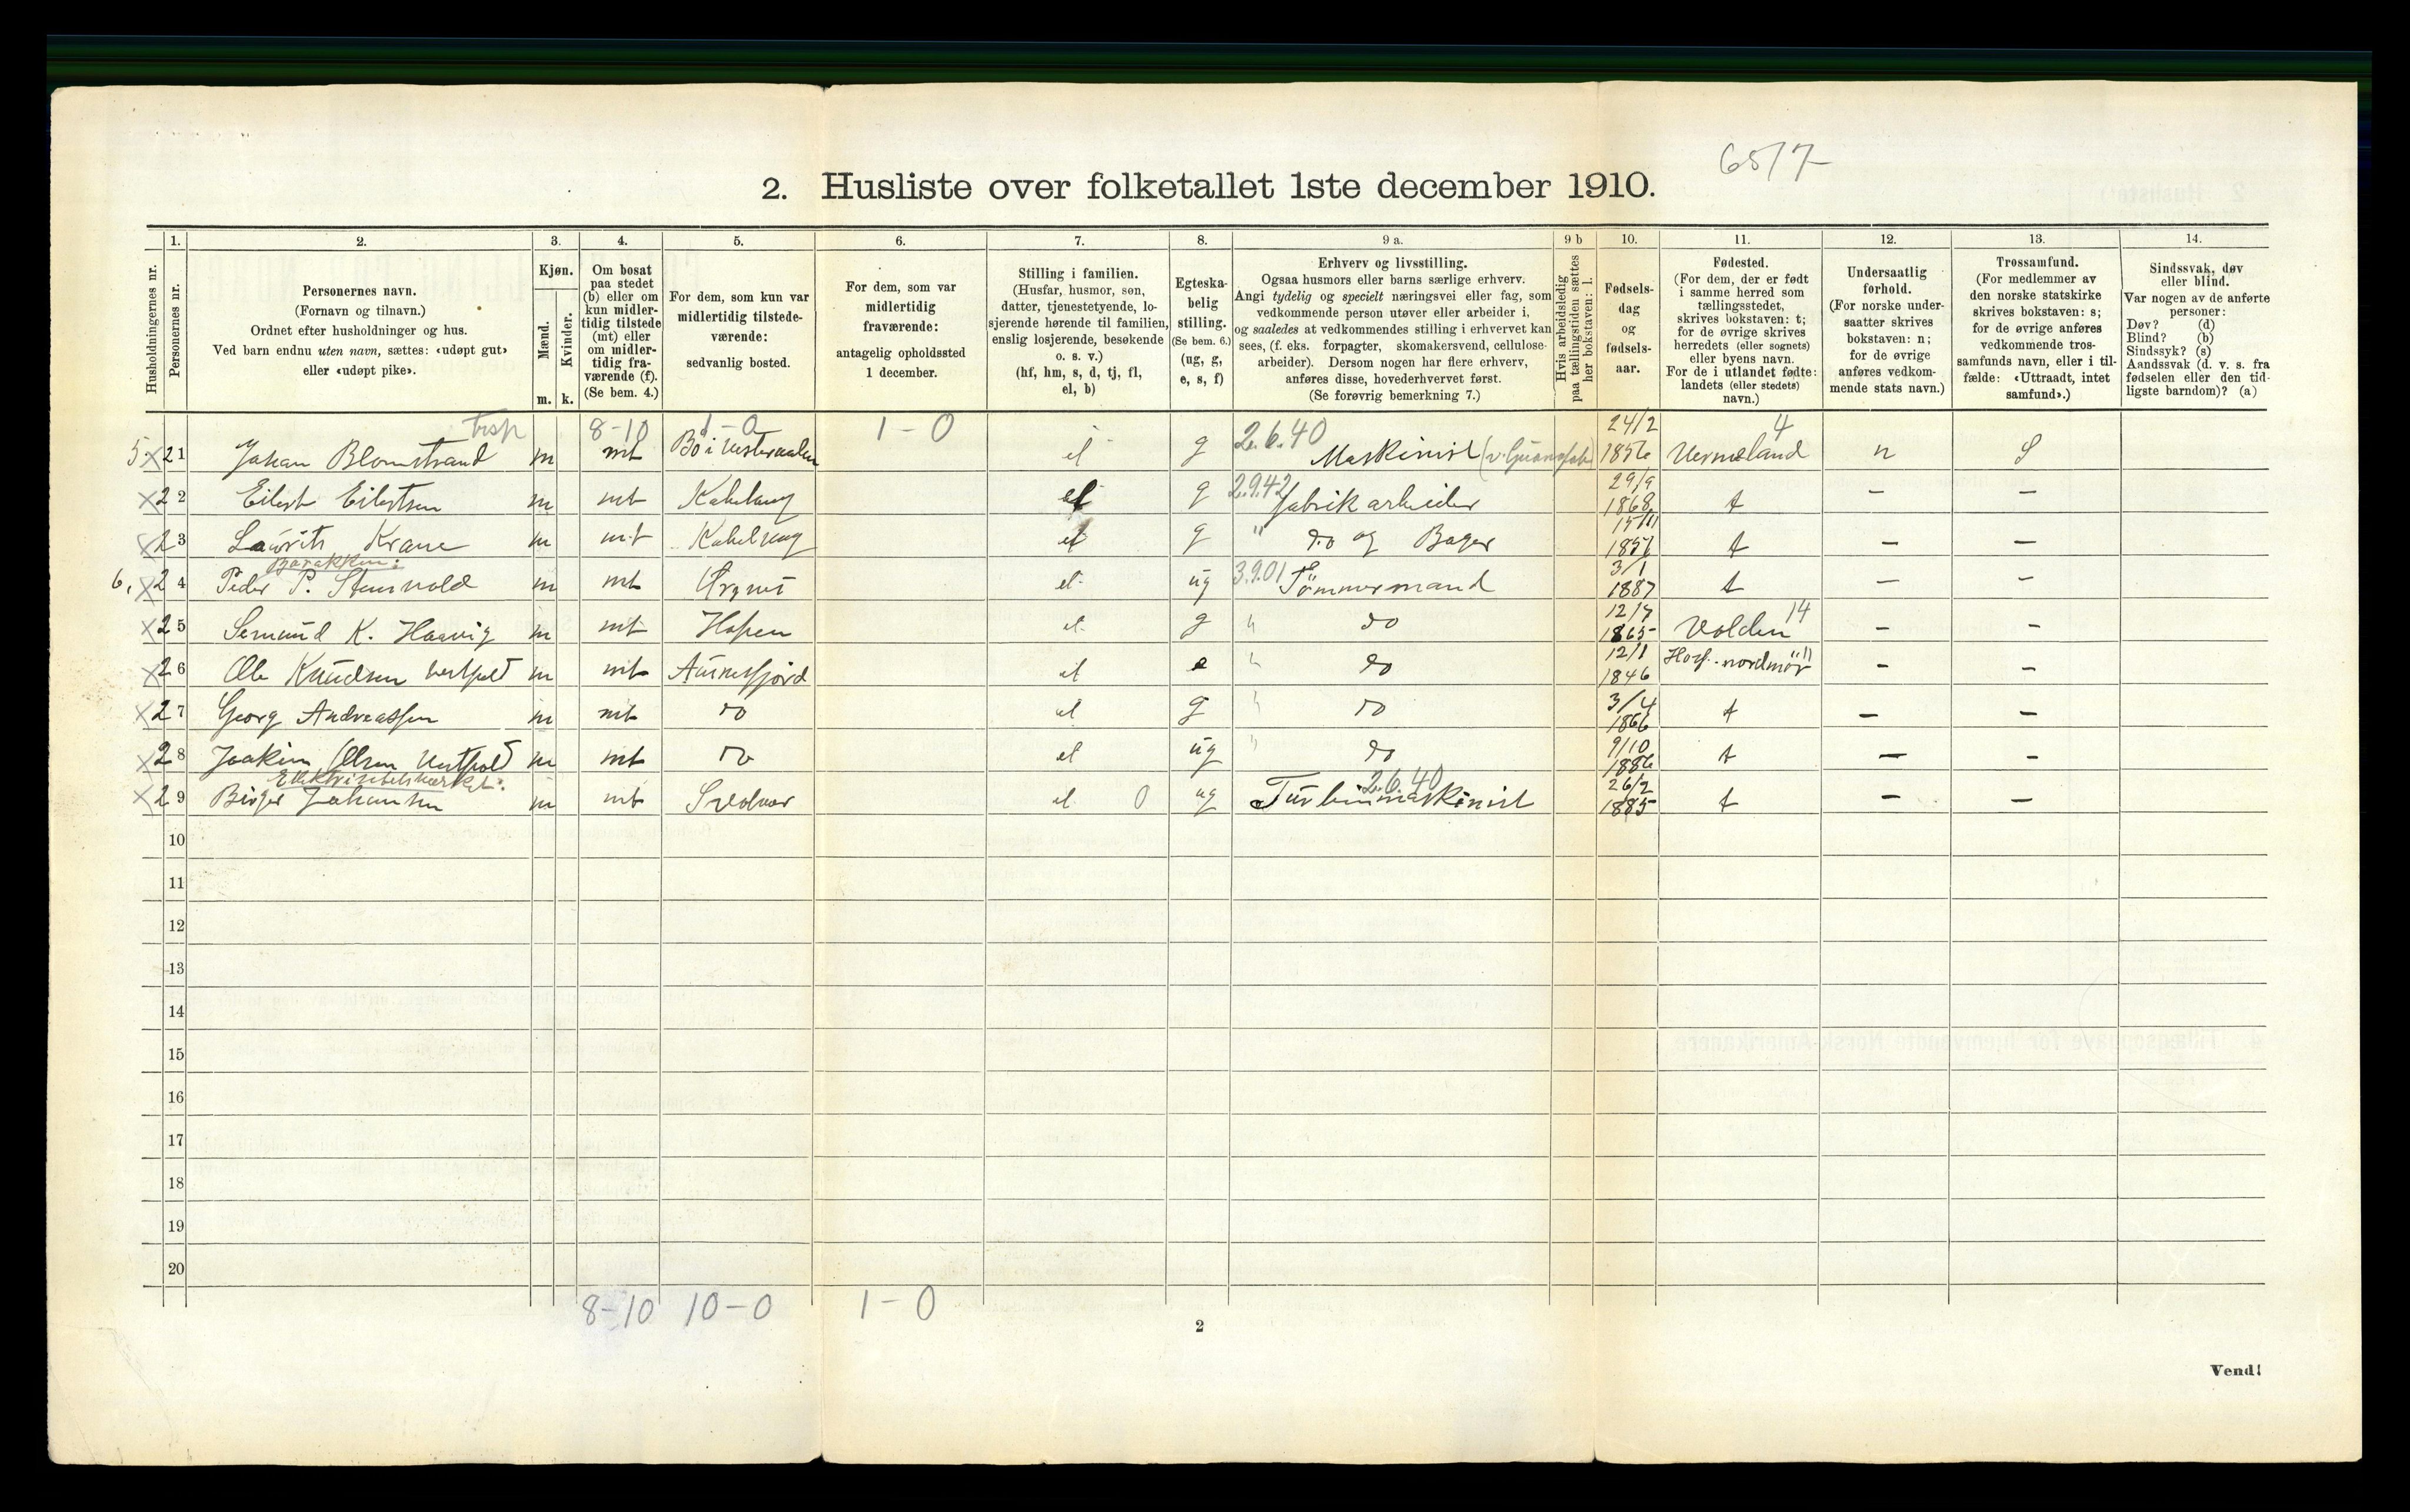 65/7
2. Husliste over folketallet 1ste december 1910.
Husholdningernes nr.
1. Personernes nr.
2. Personernes navn.
(Fornavn og tilnavn.)
Ordnet efter husholdninger og hus.
Ved barn endnu uten navn, sættes: «udøpt gut»
eller «udøpt pike».
3. Kjøn.
Mænd. Kvinder.
m. k.
4. Om bosat
paa stedet
(b) eller om
kun midler-
tidig tilstede
(mt) eller
om midler-
tidig fra-
værende (f).
(Se bem. 4.)
5. For dem, som kun var
midlertidig tilstede-
værende:
sedvanlig bosted.
6. For dem, som var
midlertidig
fraværende:
antagelig opholdssted
1 december.
7. Stilling i familien.
(Husfar, husmor, søn,
datter, tjenestetyende, lo-
sjerende hørende til familien,
enslig losjerende, besøkende
o. s. v.)
(hf, hm, s, d, tj, fl,
el, b)
8. Egteska-
belig
stilling.
(Se bem. 6.)
(ug, g,
e, s, f)
9 a. Erhverv og livsstilling.
Ogsaa husmors eller barns særlige erhverv.
Angi tydelig og specielt næringsvei eller fag, som
vedkommende person utøver eller arbeider i,
og saaledes at vedkommendes stilling i erhvervet kan
sees, (f. eks. forpagter, skomakersvend, cellulose-
arbeider). Dersom nogen har flere erhverv,
anføres disse, hovederhvervet først.
(Se forøvrig bemerkning 7.)
9 b Hvis arbeidsledig
paa tællingstiden sættes
her bokstaven: l.
10. Fødsels-
dag
og
fødsels-
aar.
11. Fødested.
(For dem, der er født
i samme herred som
tællingsstedet,
skrives bokstaven: t;
for de øvrige skrives
herredets (eller sognets)
eller byens navn.
For de i utlandet fødte:
landets (eller stedets)
navn.)
12. Undersaatlig
forhold.
(For norske under-
saatter skrives
bokstaven: n;
for de øvrige
anføres vedkom-
mende stats navn.)
13. Trossamfund.
(For medlemmer av
den norske statskirke
skrives bokstaven: s;
for de øvrige anføres
vedkommende tros-
samfunds navn, eller i til-
fælde: «Uttraadt, intet
samfund».)
14. Sindssvak, døv
eller blind.
Var nogen av de anførte
personer:
Døv? (d)
Blind? (b)
Sindssyk? (s)
Aandssvak (d. v. s. fra
fødselen eller den tid-
ligste barndom)? (a)
8-10 1-0 1-0 2.6.40 24/2 4
5. x 21 Johan Blomstrand m mt Bö i Vesteraalen el g Maskinist 1856 Vermeland n S
x 22 Eilert Eilertsen m mt Kabelvag el g 2.9.42 fabrikarbeider 29/9 1868 t - -
x 23 Laurits Krane m mt Kabelvag el g " do og Bager 15/11 t - -
Barakken:
6. x 24 Peder P. m mt el ug 3.9.01 Tömmermand 3/1 1887 t - -
x 25 K. Haavig m mt Hopen el g " do 12/7 1865 Volden 14 - -
x 26 Ole Knudsen m mt Aurnesfjord el e " do 12/1 1846 - -
x 27 Georg Andreassen m mt do el g " do 3/4 1866 t - -
x 28 Joakim Olsen m mt do el ug " do 9/10 1886 t - -
Elektricitetsværket:
x 29 Birger Johansen m mt Svolvær el 0 ug Turbinmaskinist 2.6.40 26/2 1885 t - -
10
11
12
13
14
15
16
17
18
19
20
8-10 10-0 1-0
2
Vend!